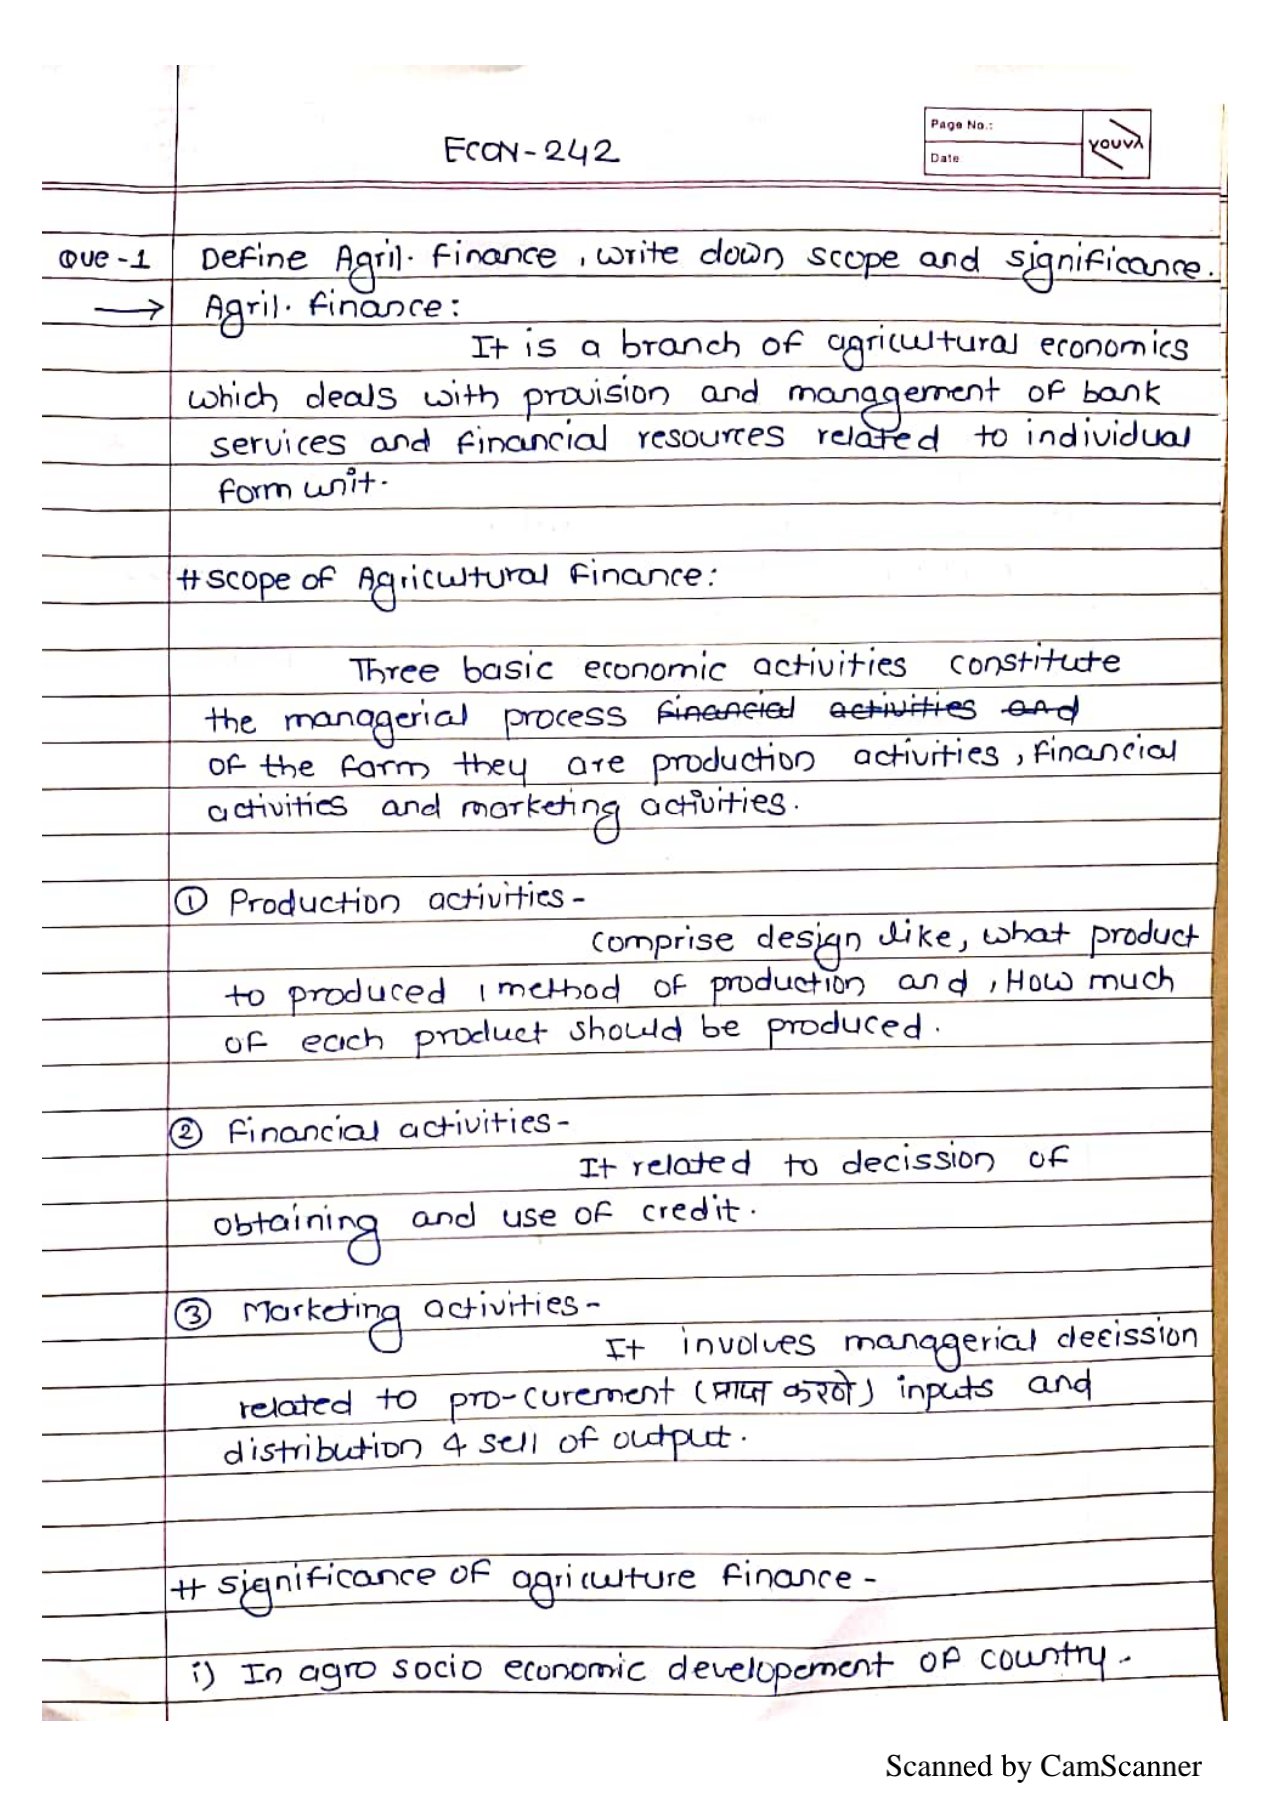 ECON-242
Page No.:
Date
YOUVA
Que-1 Define Agril. finance, write down scope and significance.
→ Agril. finance:
It is a branch of agricultural economics
which deals with provision and management of bank
services and financial resources related to individual
form unit.
# scope of Agricultural Finance:
Three basic economic activities constitute
the managerial process financial activities and
of the farm they are production activities, financial
activities and marketing activities.
① Production activities-
comprise design like, what product
to produced, method of production and, How much
of each product should be produced.
② financial activities-
It related to decission of
obtaining and use of credit.
③ Marketing activities-
It involves managerial decission
related to pro-curement (प्राप्त करणे) inputs and
distribution & sell of output.
# significance of agriculture finance-
i) In agro socio economic developement of country.
Scanned by CamScanner